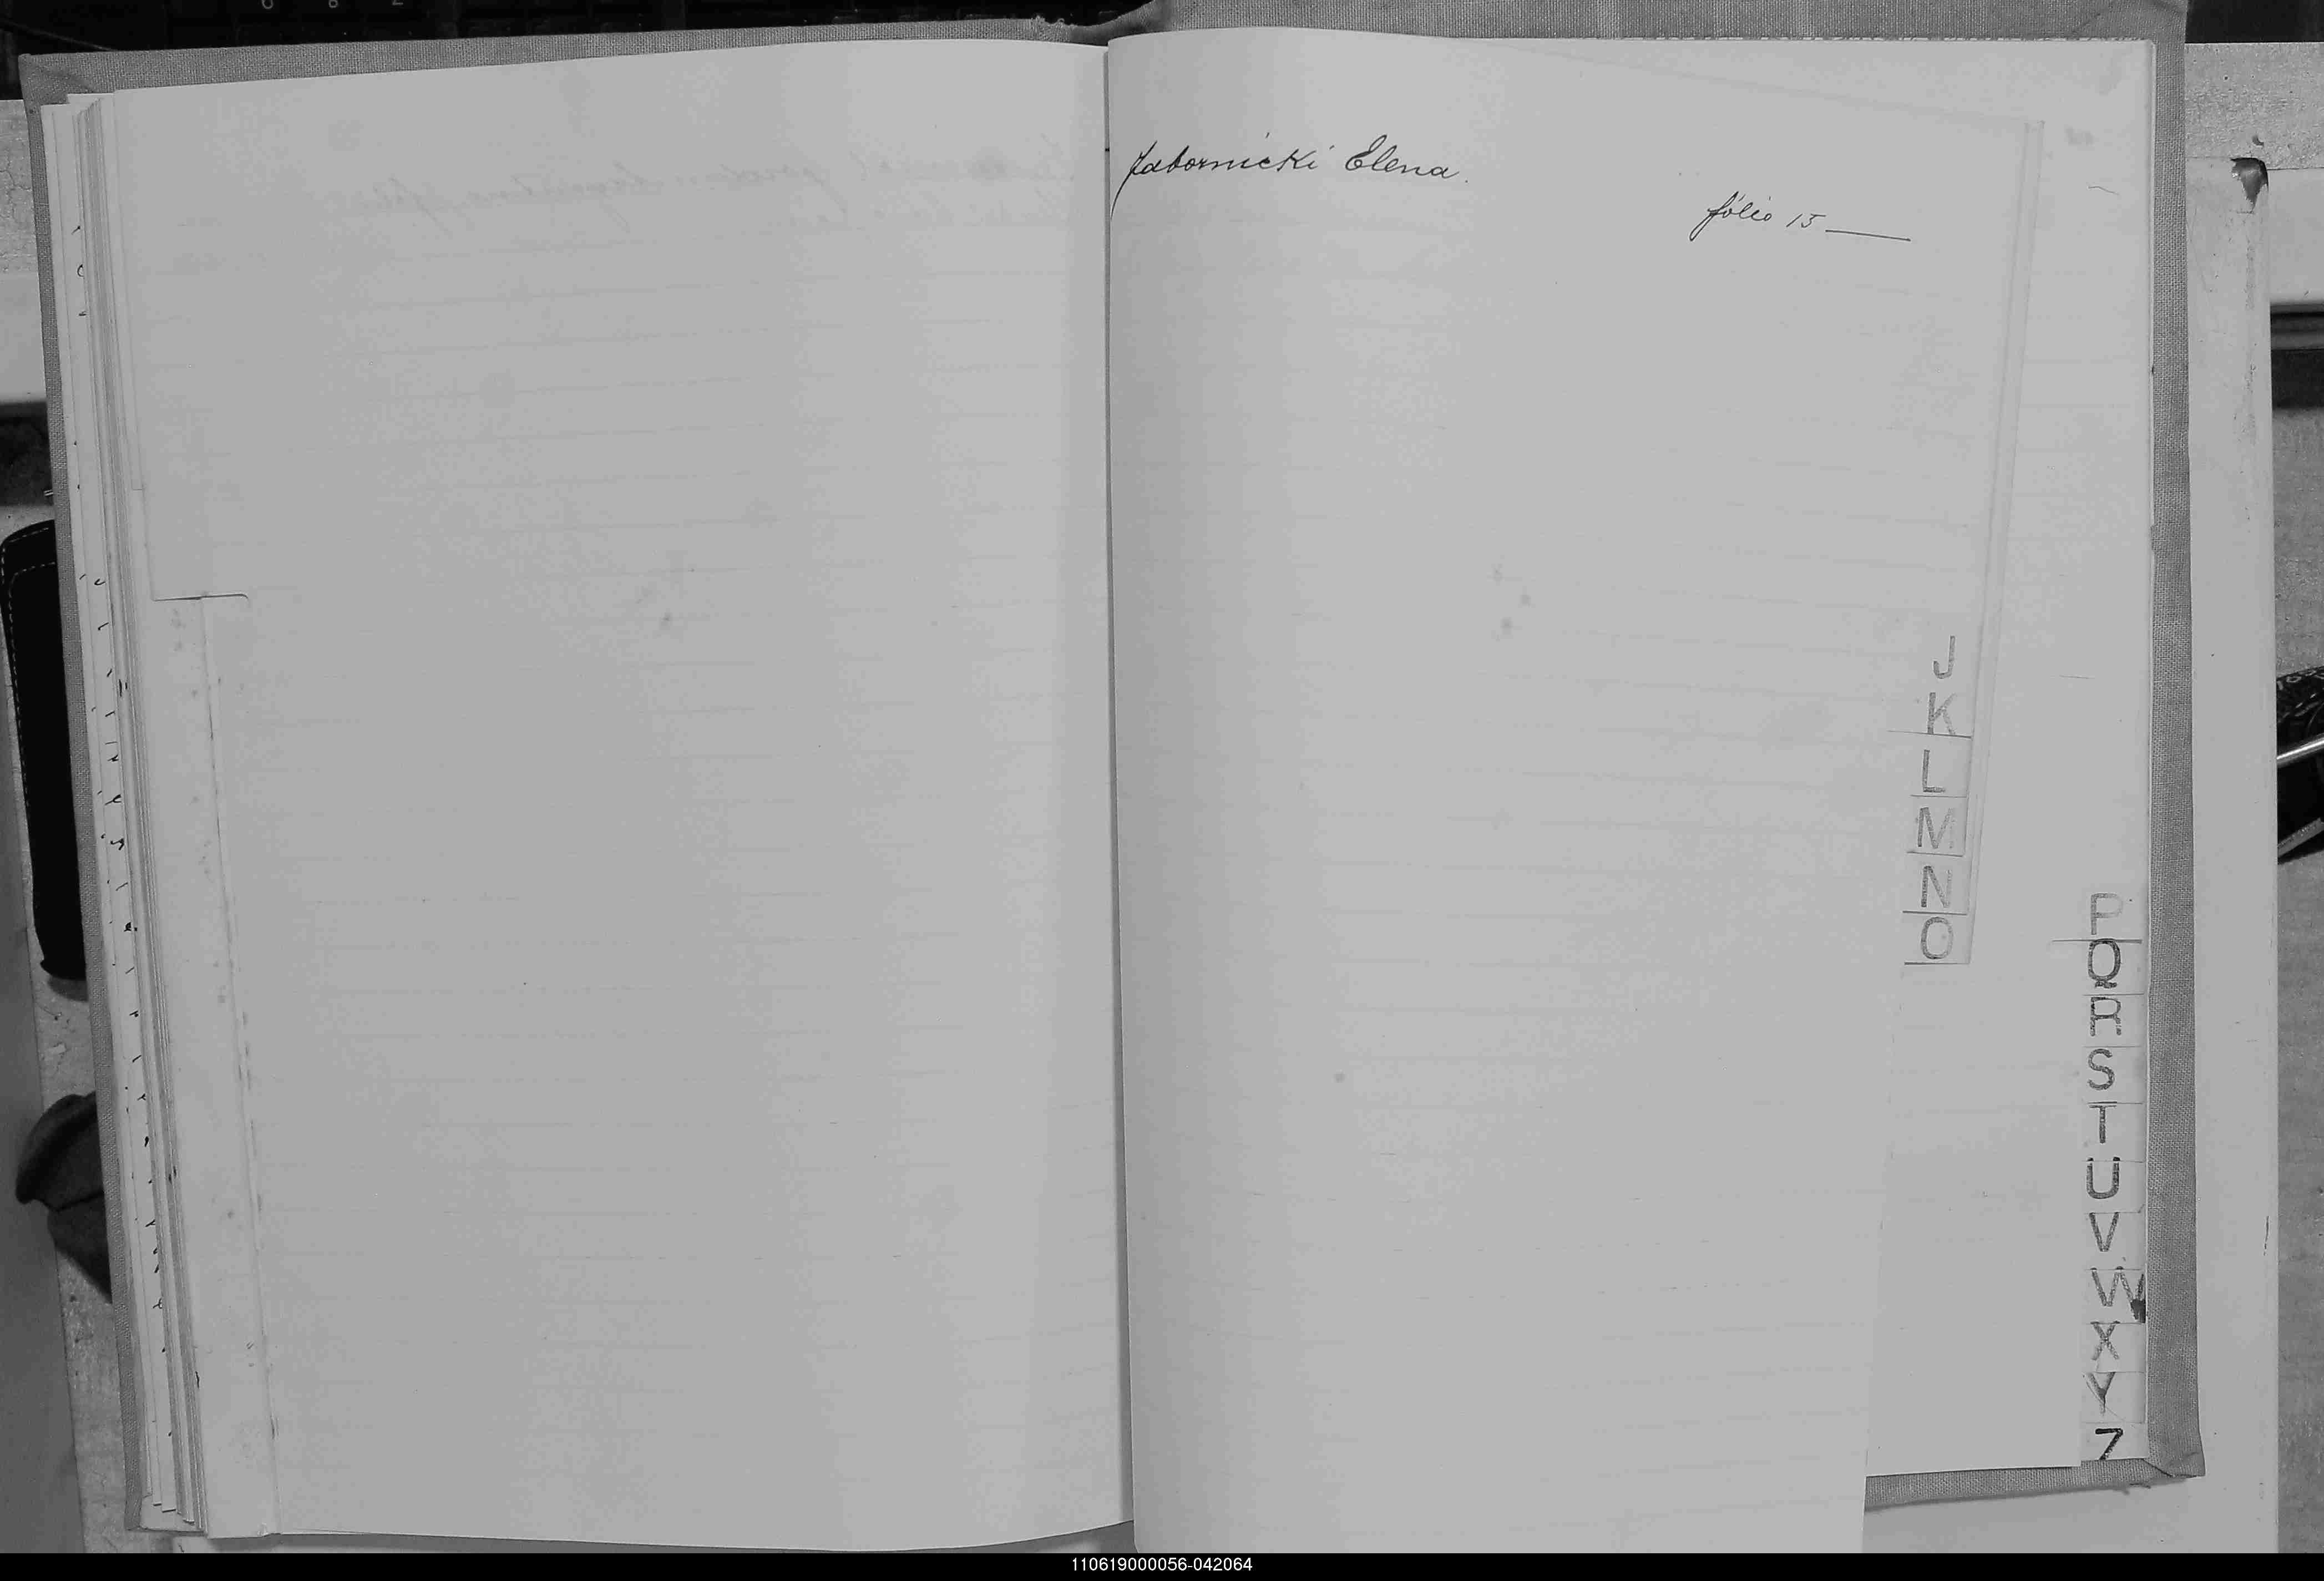 Jabornicki Elena.
fólio 15
J
K
L
M
N
O
P
Q
R
S
T
U
V
W
X
Y
Z
110619000056-042064